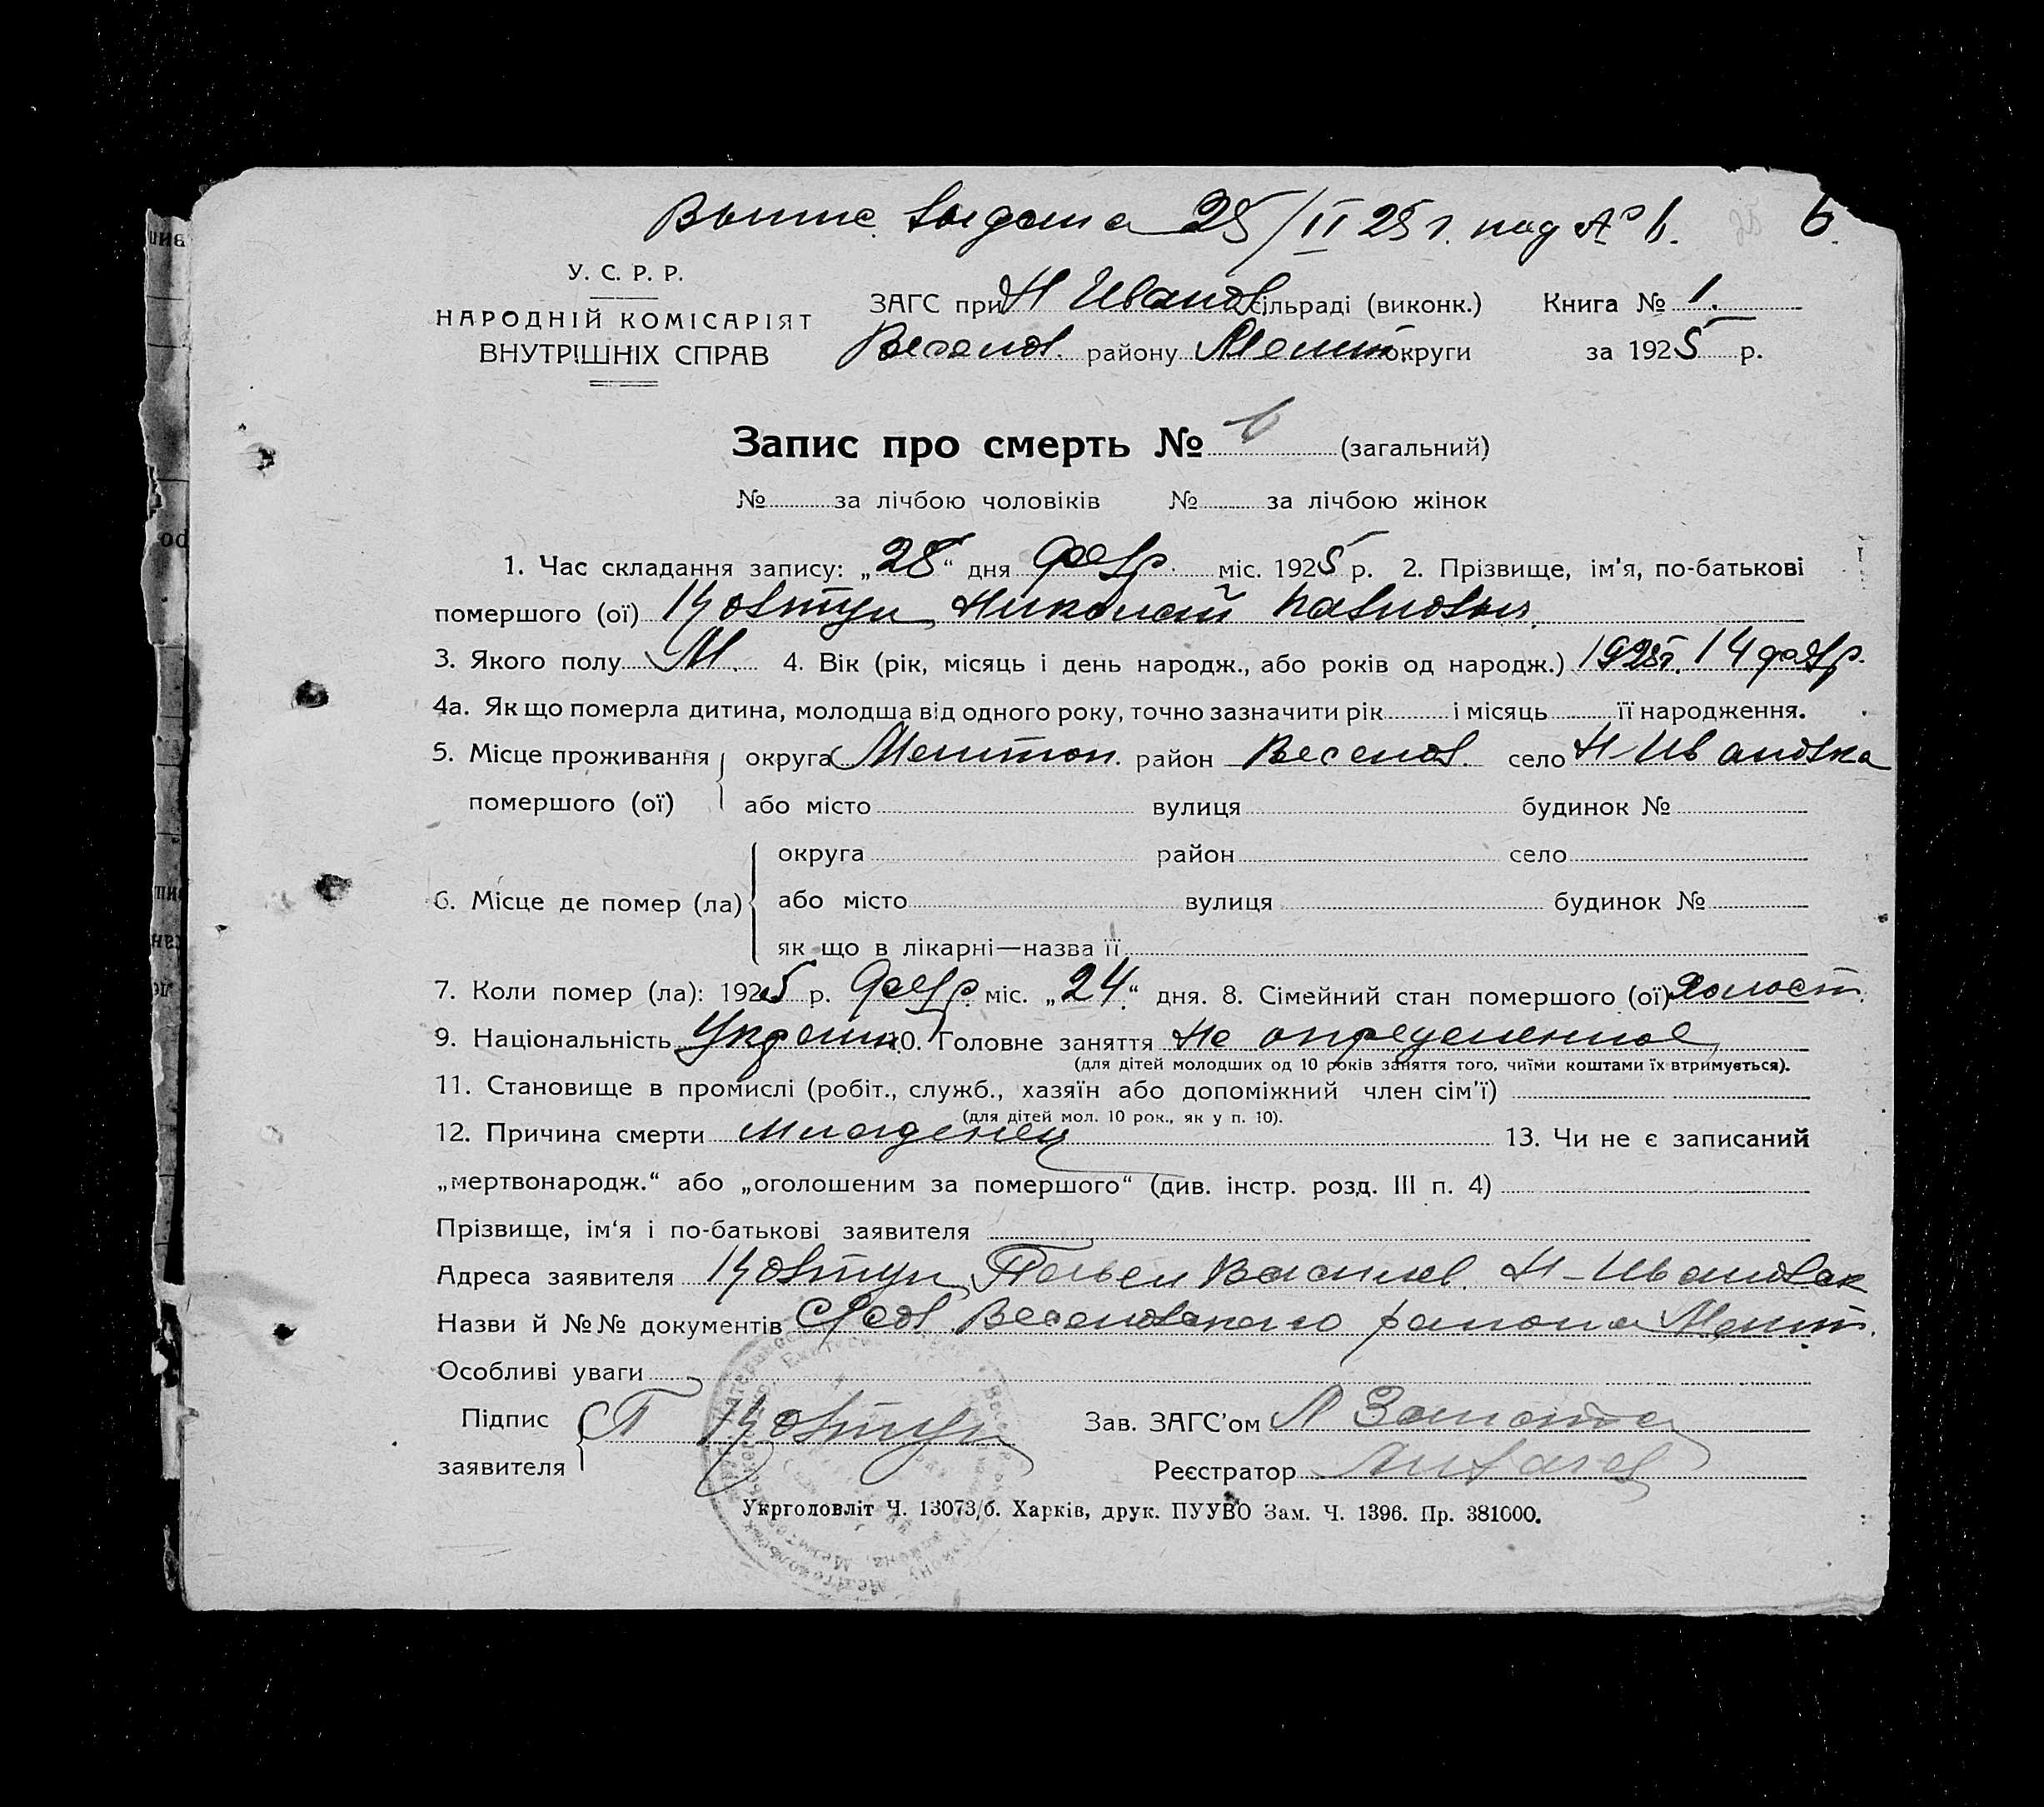 Выпис. выдана 25/II 25 г. под № 6. 6.
У. С. Р. Р.
НАРОДНІЙ КОМІСАРІЯТ
ВНУТРІШНІХ СПРАВ
ЗАГС при Н Иванов. сільраді (виконк.) Книга № 1.
Веселов. району Мелит. округи за 1925 р.
Запис про смерть № 6 (загальний)
№ за лічбою чоловіків № за лічбою жінок
1. Час складання запису: „28“ дня февр. міс. 1925 р. 2. Прізвище, ім'я, по-батькові
помершого (ої) Ковтун Николай Павлович.
3. Якого полу М. 4. Вік (рік, місяць і день народж., або років од народж.) 1925г. 14 февр.
4а. Як що померла дитина, молодша від одного року, точно зазначити рік і місяць її народження.
5. Місце проживання округа Мелитоп. район Веселов. село Н-Ивановка
помершого (ої) або місто вулиця будинок №
округа район село
6. Місце де помер (ла) або місто вулиця будинок №
як що в лікарні—назва її
7. Коли помер (ла): 1925 р. февр. міс. „24“ дня. 8. Сімейний стан помершого (ої) холост.
9. Національність Украин. 10. Головне заняття Не определенное
(для дітей молодших од 10 років заняття того, чиїми коштами їх втримується).
11. Становище в промислі (робіт., служб., хазяїн або допоміжний член сім'ї)
(для дітей мол. 10 рок., як у п. 10).
12. Причина смерти младенец 13. Чи не є записаний
„мертвонародж.“ або „оголошеним за помершого“ (див. інстр. розд. III п. 4)
Прізвище, ім'я і по-батькові заявителя
Адреса заявителя Ковтун Павел Василев. Н-Ивановск
Назви й №№ документів Веселовского района Мелит.
Особливі уваги
Підпис П Ковтун Зав. ЗАГС'ом
заявителя Реєстратор
Укрголовліт Ч. 13073/б. Харків, друк. ПУУВО Зам. Ч. 1396. Пр. 381000.